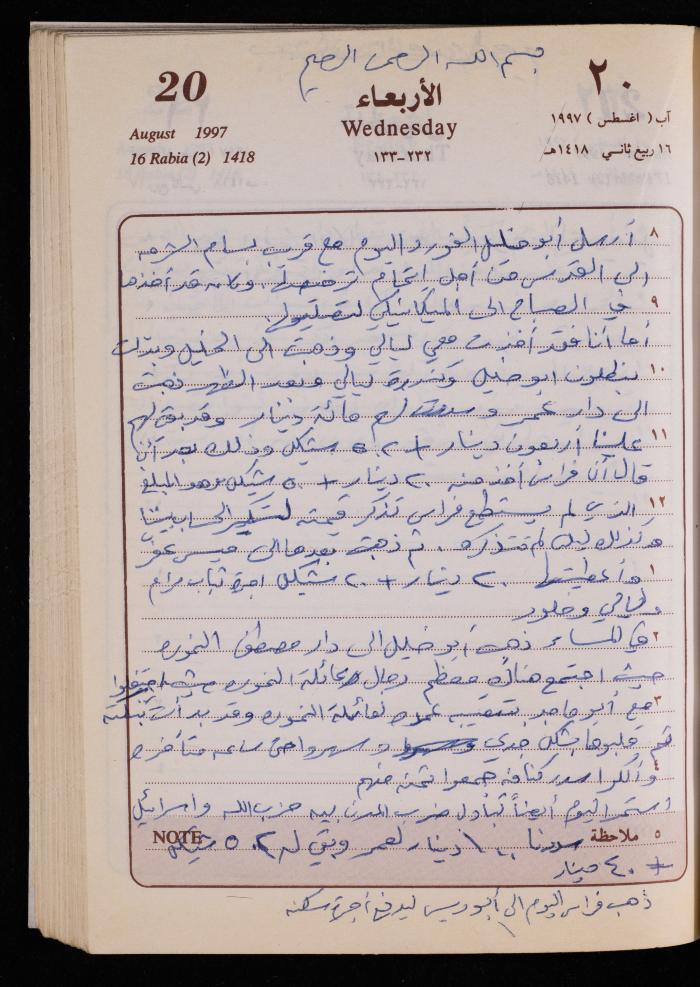 بسم الله الرحمن الرحيم
20
August 1997
16 Rabia (2) 1418
الأربعاء
Wednesday
٢٣٢-١٣٣
٢٠
آب ( اغسطس ) ١٩٩٧
١٦ ربيع ثاني ١٤١٨هـ
٨ أرسل أبو خليل الفورد اليوم مع قريب بسام
الى القدس من أجل اتمام ترخيصها. وكانه قد أخذها
٩ في الصباح الى الميكانيكي لتصليحها.
أما أنا فقد أخذت معي ليالي وذهبت الى الخليل وبدلت
١٠ بنطلون ابو خليل وتنورة ليالي وبعد الظهر ذهبت
الى دار عمر و سددت لهم مائة دينار وقد بقي لهم
١١ علينا أربعون دينار + ٢٠٥ شيكل وذلك بعد أن
قال أن فراس أخذ منه ٢٠ دينار + ٥٠ شيكل وهو المبلغ
١٢ الذي لم يستطع فراس تذكر قيمته لتسكير الحساب بيننا
وكذلك ليلى لم تتذكره. ثم ذهبت بعدها الى ميسر عوض
١ وأعطيتها ٢٠ دينار + ٢٠ شيكل اجرة ثياب مرام
وليالي وخلود
٢ في المساء ذهب أبو خليل الى دار مصطفى النموره
حيث اجتمع هناك معظم رجال عائلة النموره حيث احتفلوا
٣ مع أبو ماجد بتنصيبه عمده لعائلة النموره وقد بدأت بنكته
ثم قلبوها بشكل جدي و سهروا حتى ساعه متأخره
٤ وأكلوا سدر كنافه جمعوا ثمنه منهم
استمر اليوم أيضاً تبادل ضرب المدن بين حزب الله واسرائيل
٥ ملاحظة سددنا ١٠٠ دينار لعمر وبقي له ٢٠٥ شيكل NOTE
+ ٤٠ دينار
ذهب فراس اليوم الى أبو ديس ليدفع أجرة سكنه